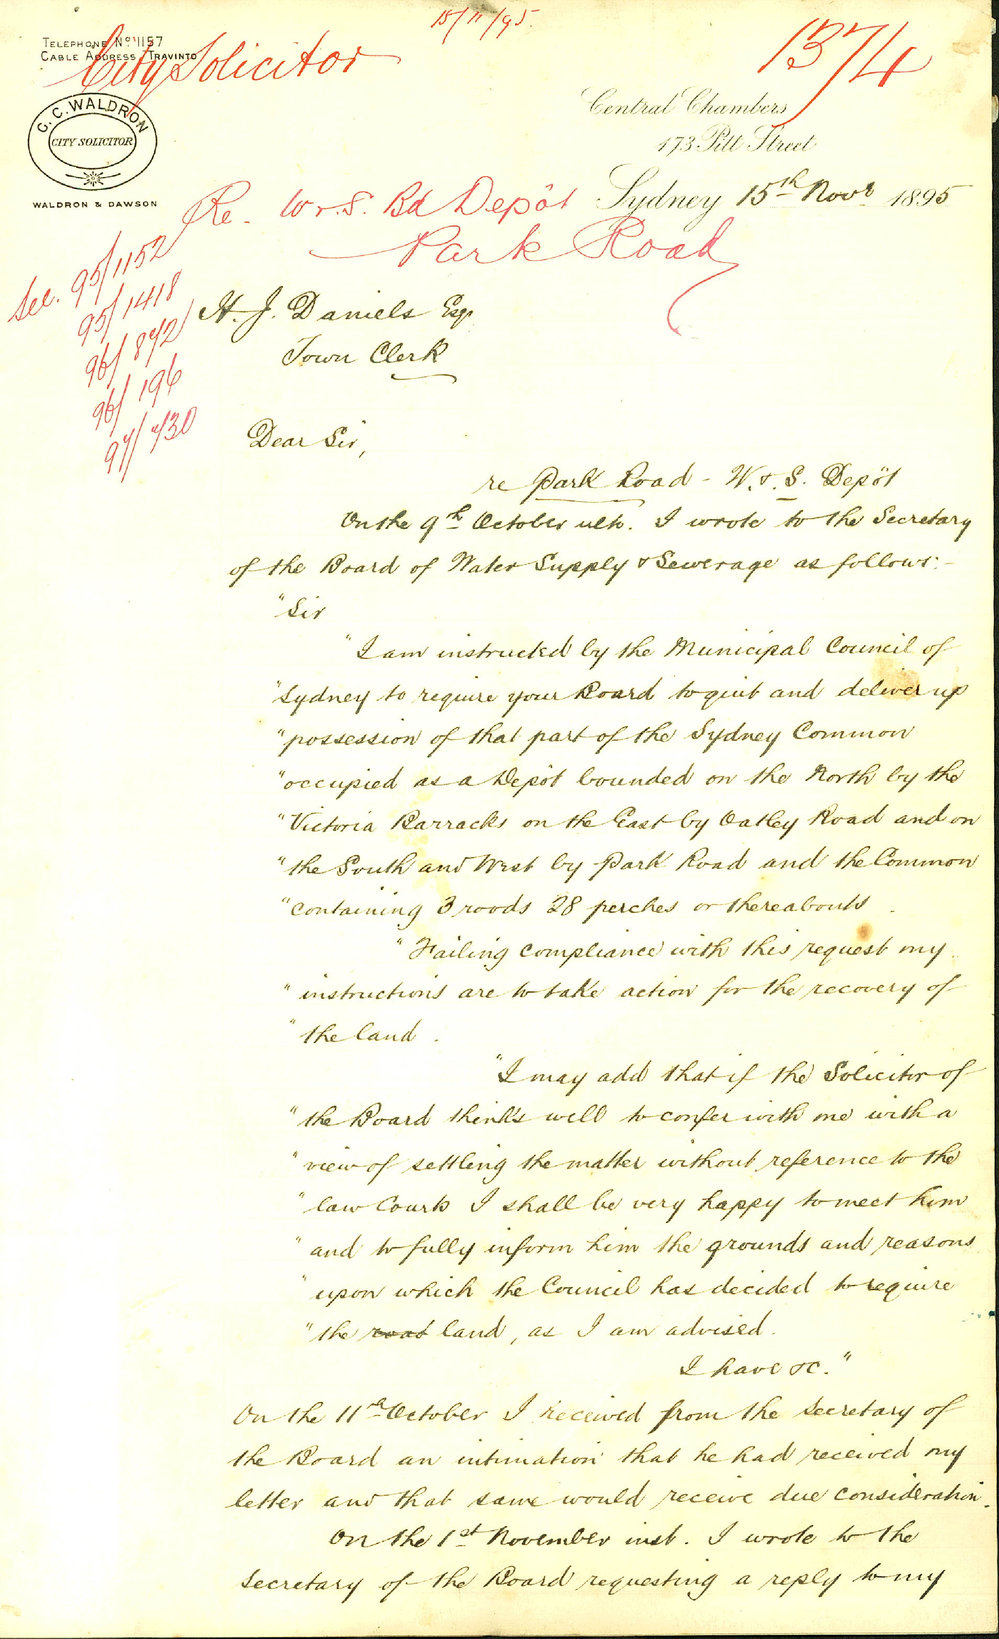 15/11/95.
1374
TELEPHONE Nº 1157
CABLE ADDRESS "TRAVINTO"
City Solicitor
G. C. WALDRON
CITY SOLICITOR
WALDRON & DAWSON
Central Chambers
173 Pitt Street
Sydney 15th Novr 1895
Re. W & S. Bd Depôt
Park Road
See. 95/1152
95/1418
96/872
96/196
97/730
H. J. Daniels Esq
Town Clerk
Dear Sir,
re Park Road - W. & S. Depôt
On the 9th October ulto. I wrote to the Secretary
of the Board of Water Supply & Sewerage as follows:-
"Sir
"I am instructed by the Municipal Council of
"Sydney to require your Board to quit and deliver up
"possession of that part of the Sydney Common
"occupied as a Depôt bounded on the North by the
"Victoria Barracks on the East by Oatley Road and on
"the South and West by Park Road and the Common
"containing 3 roods 28 perches or thereabouts.
"Failing compliance with this request my
"instructions are to take action for the recovery of
"the land.
"I may add that if the Solicitor of
"the Board thinks well to confer with me with a
"view of settling the matter without reference to the
"law Courts I shall be very happy to meet him
"and to fully inform him the grounds and reasons
"upon which the Council has decided to require
"the road land, as I am advised.
I have &c."
On the 11th October I received from the Secretary of
the Board an intimation that he had received my
letter and that same would receive due consideration.
On the 1st November inst. I wrote to the
Secretary of the Board requesting a reply to my